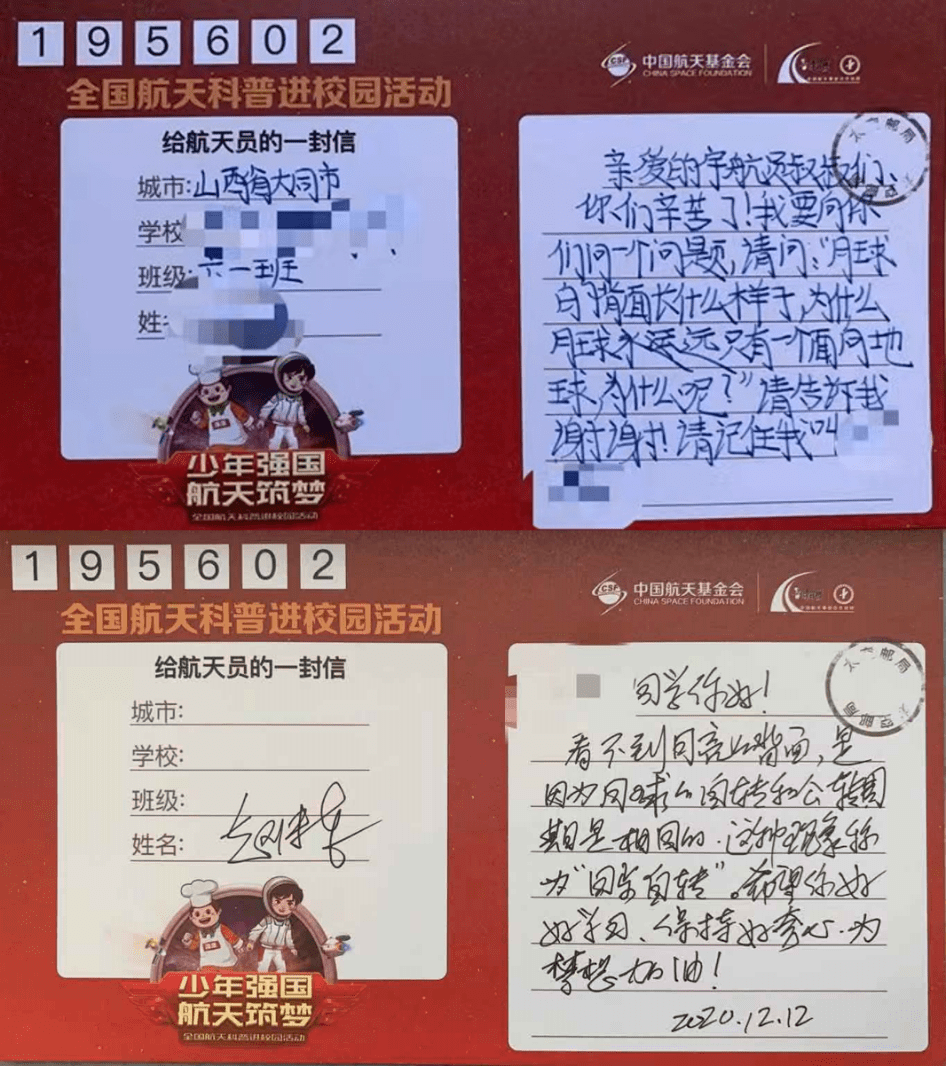 195602
全国航天科普进校园活动
中国航天基金会
CHINA SPACE FOUNDATION
给航天员的一封信
城市:山西省大同市
学校
班级:六一班
姓
少年强国
航天筑梦
全国航天科普进校园活动
太空邮局
亲爱的宇航员叔叔们、
你们辛苦了!我要向你
们问一个问题,请问:“月球
的背面长什么样子,为什么
月球永远远只有一个面向地
球,为什么呢?”请告诉我
谢谢!请记住我叫
195602
全国航天科普进校园活动
中国航天基金会
CHINA SPACE FOUNDATION
给航天员的一封信
城市:
学校:
班级:
姓名:
少年强国
航天筑梦
全国航天科普进校园活动
太空邮局
太空邮局
同学你好!
看不到月亮的背面,是
因为月球的自转和公转周
期是相同的.这种现象称
为“同步自转”。希望你好
好学习、保持好奇心.为
梦想加油!
2020.12.12